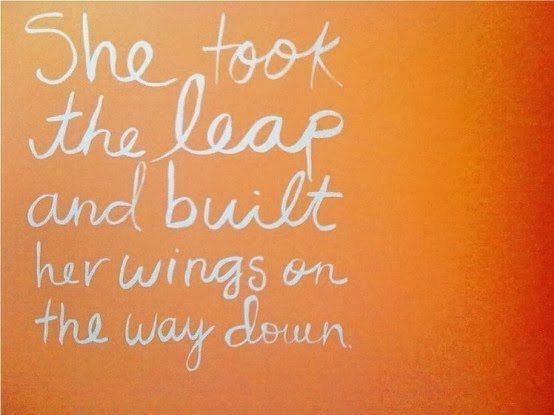 She took
the leap
and built
her wings on
the way down.